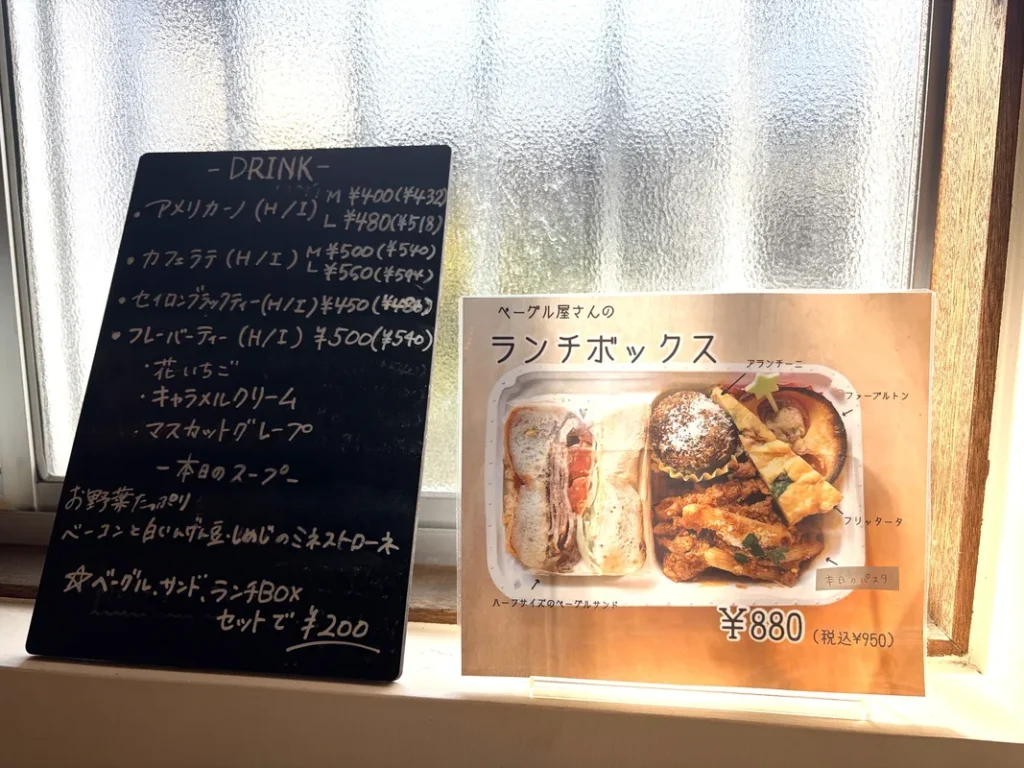 -DRINK-
・アメリカーノ(H/I) M ¥400(¥432)
L ¥480(¥518)
・カフェラテ(H/I) M ¥500(¥540)
L ¥550(¥594)
・セイロンブラックティー(H/I) ¥450(¥486)
・フレーバーティー(H/I) ¥500(¥540)
・花いちご
・キャラメルクリーム
・マスカットグレープ
-本日のスープ-
お野菜たっぷり
ベーコンと白いんげん豆・しめじのミネストローネ
☆ベーグル、サンド、ランチBOX
セットで ¥200
ベーグル屋さんの
ランチボックス
アランチーニ
ファーブルトン
フリッタータ
本日のパスタ
ハーフサイズのベーグルサンド
¥880(税込¥950)